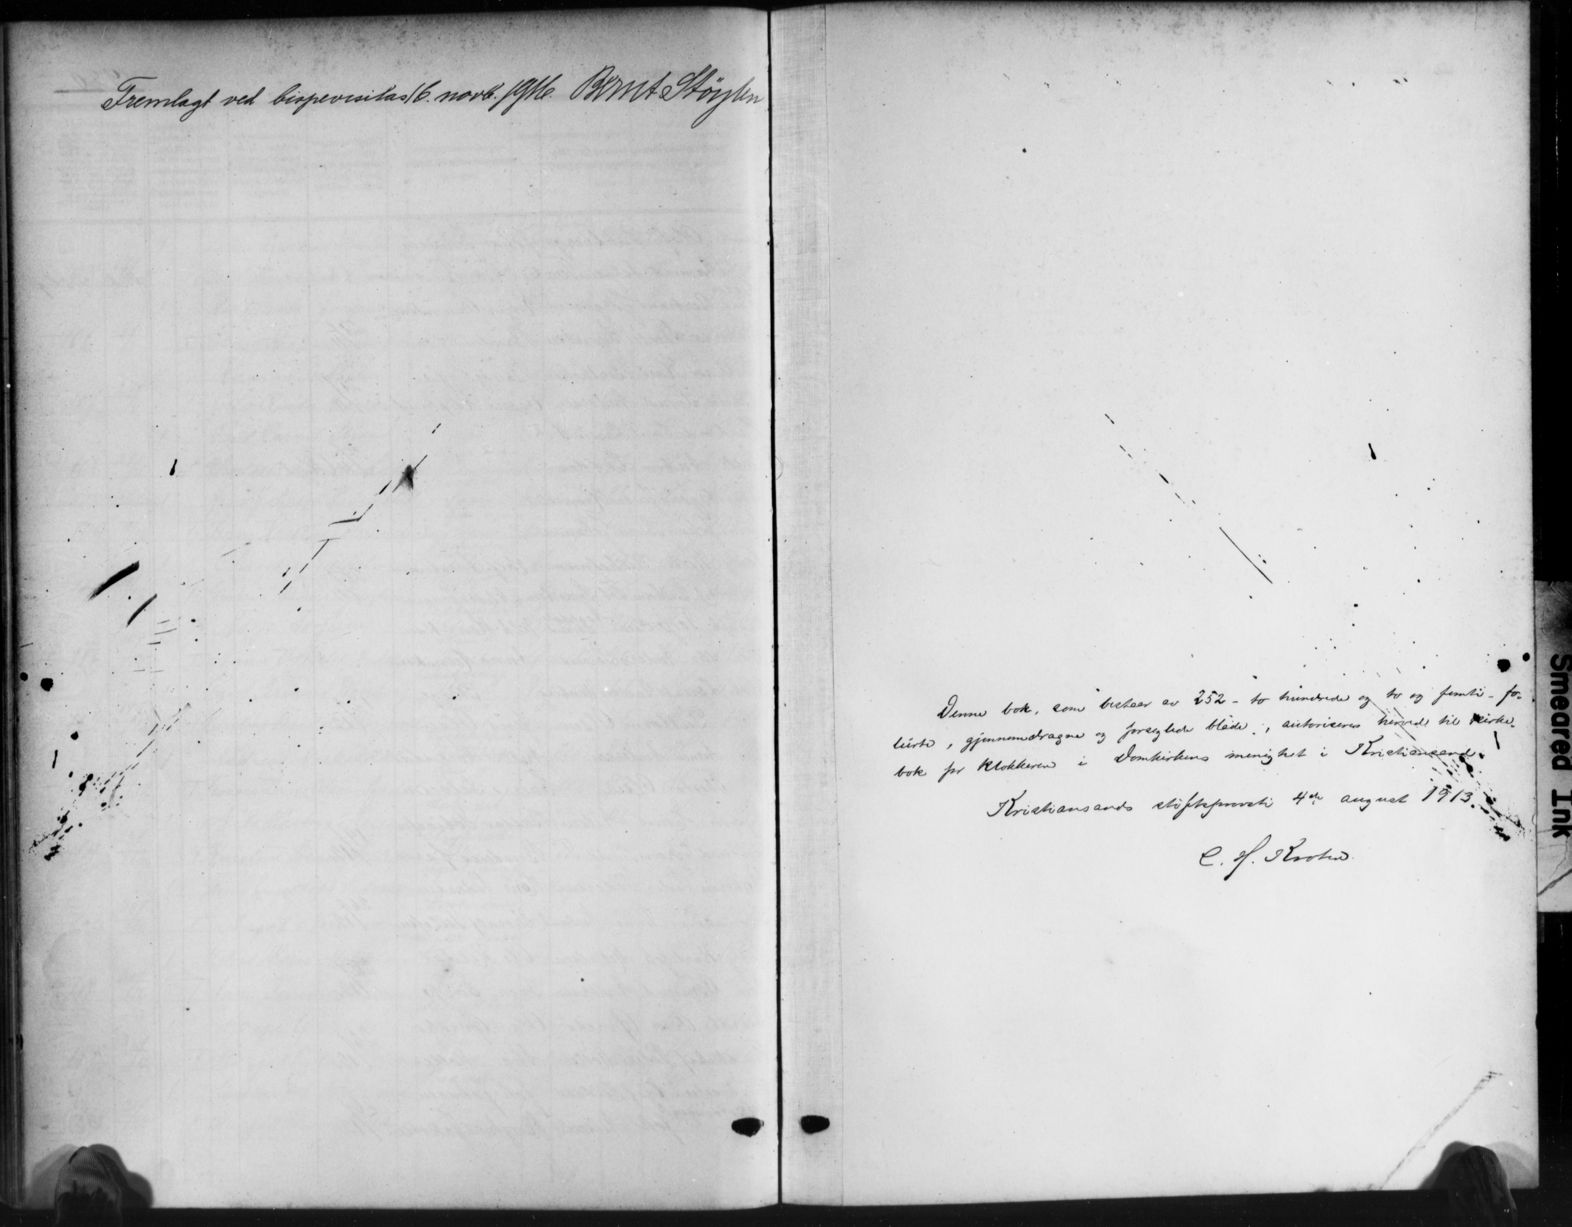 Fremlagt ved bispevisitas 16. novb. 1916. Bernt Støylen
Denne bok, som bestaar av 252 - to hundrede og to og femti - fo-
lierte, gjennemdragne og forseglede blade, autoriseres herved til kirke-
bok for klokkeren i Domkirkens menighet i Kristiansand.
Kristiansands stiftsprovsti 4de august 1913.
C. H.
Smeared Ink